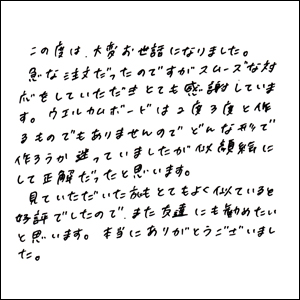 この度は、大変お世話になりました。
急な注文だったのですがスムーズな対
応をしていただきとても感謝していま
す。ウエルカムボードは2度3度と作
るものでもありませんのでどんな形で
作ろうか迷っていましたが似顔絵に
して正解だったと思います。
見ていただいた方もとてもよく似ていると
好評でしたので、また友達にも勧めたい
と思います。本当にありがとうございまし
た。